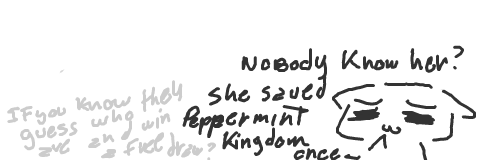 Nobody Know her?
she saved
Peppermint
Kingdom
once~
If you know they
guess who and win
a free draw?